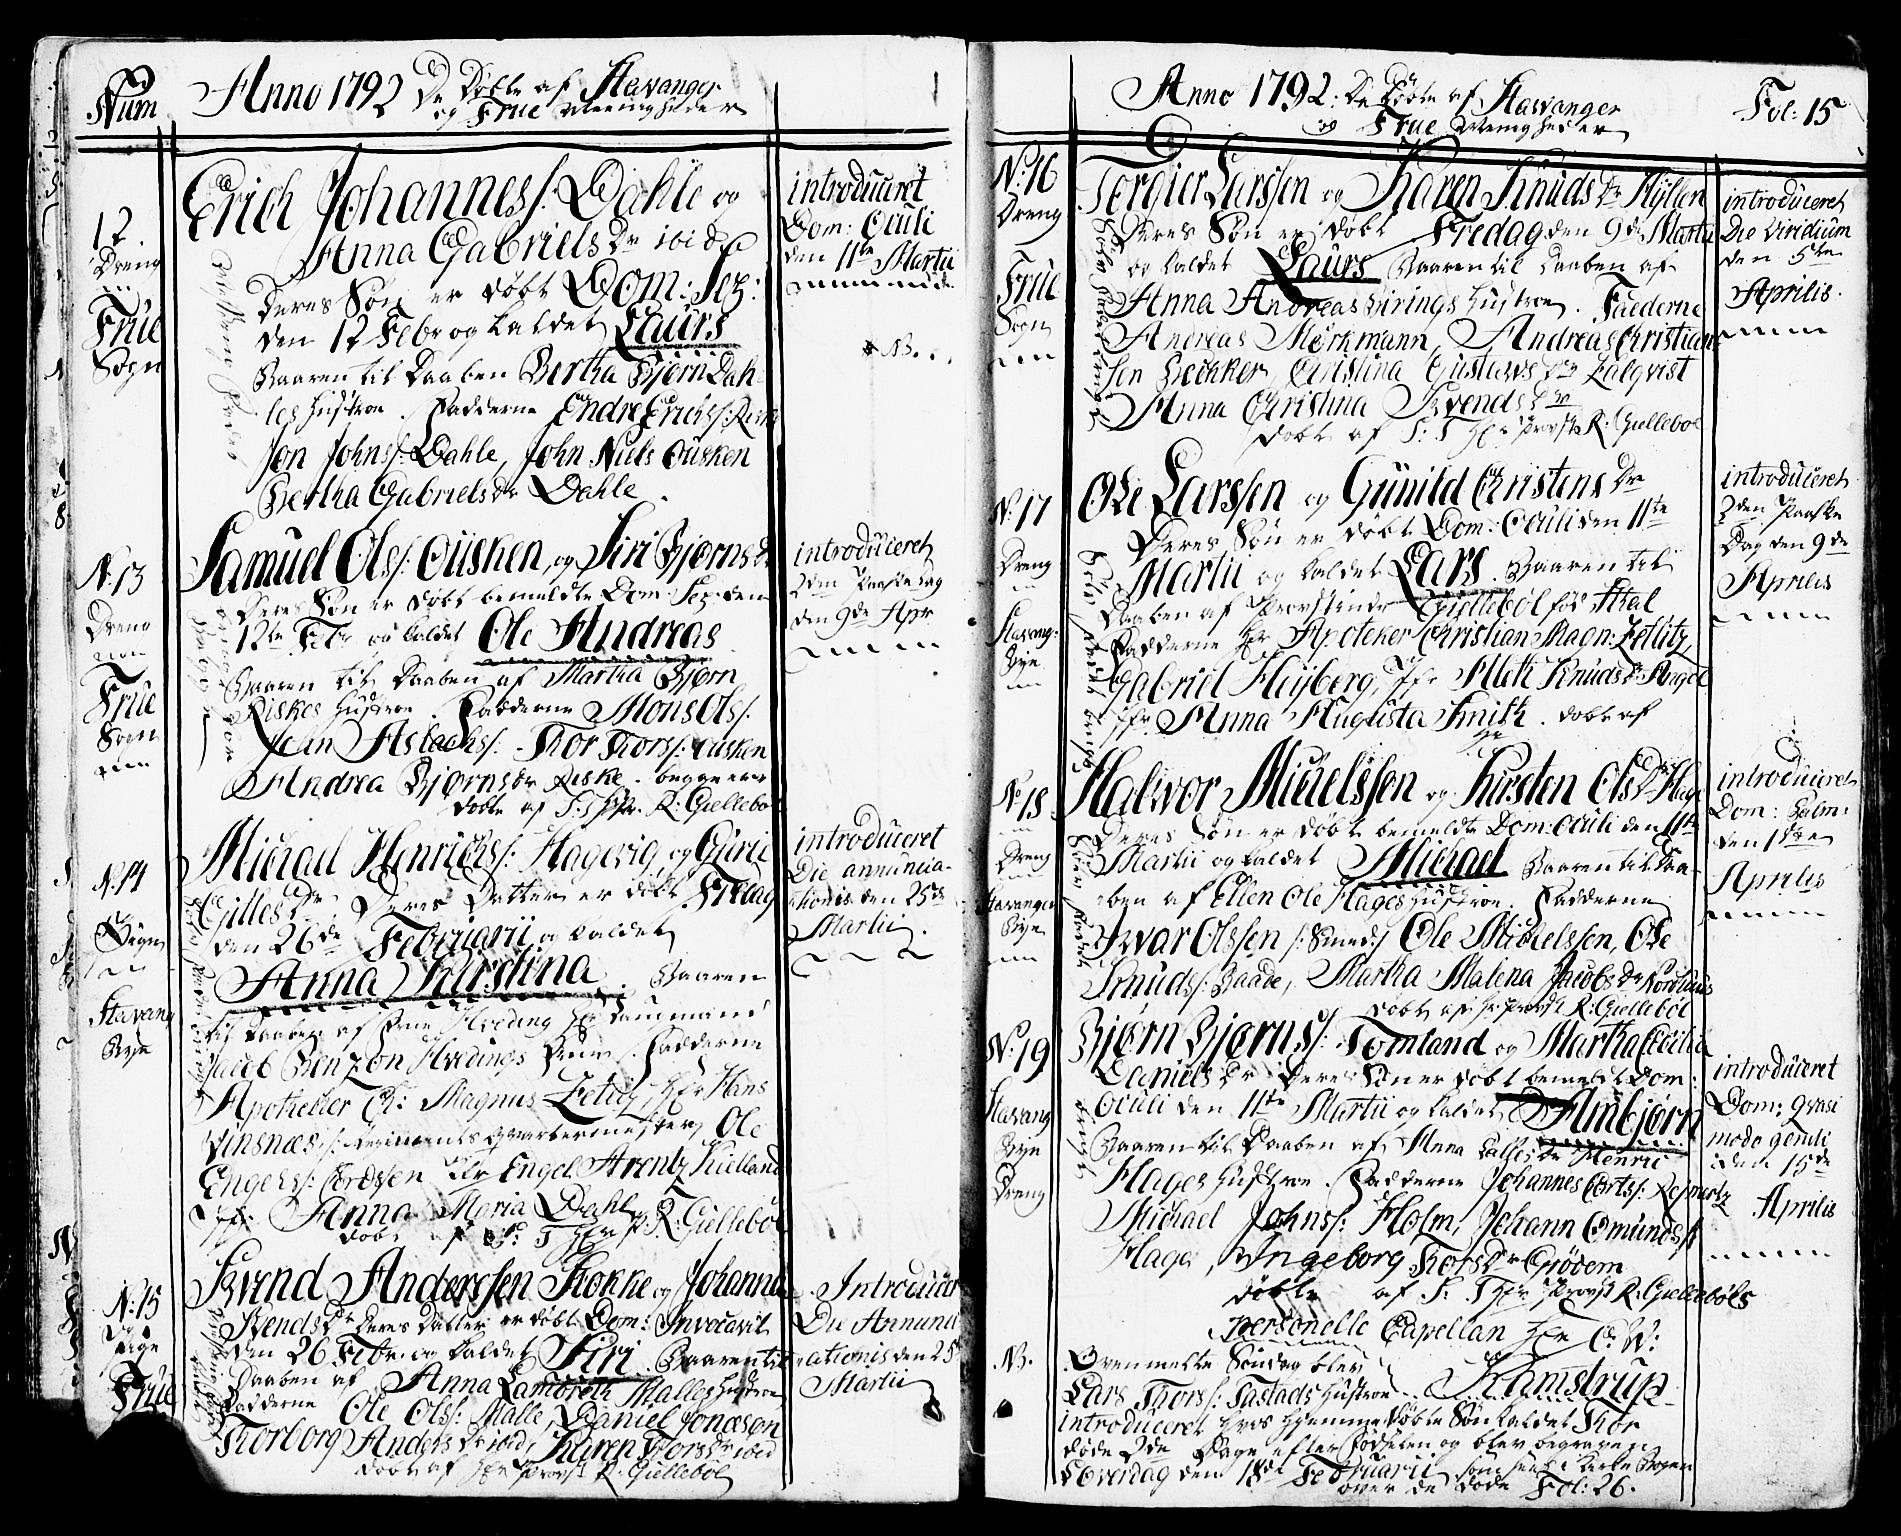 Num
Anno 1792 De Døbte af Stavanger
og Frue Meenigheder
12.
Dreng
Frue
Sogn
Erich Johanness: Dahle og
Anna GabrielsDr ibid
Deres Søn er døbt Dom: Sex:
den 12 Febr og kaldet Laurs
Baaren til Daaben Bertha Bjørn Dah-
les Hustroe. Fadderne Endre Erichs:
Jon Johns: Dahle, John Niels Ousken
Bertha GabrielsDr Dahle.
introduceret
Dom: Oculi
den 11te Martii
NB.
N:13
Dreng
Frue
Sogn
Samuel Ols: Ousken, og Siri BjørnsDr
Deres Søn er døbt bemeldte Dom: Sex: den
12te Febr og kaldet Ole Andreas
Baaren til Daaben af Martha Bjørn
Riskes Hustroe. Fadderne Mons Ols:
John Aslachs: Thor Thors: Ousken
Andrea BjørnsDr Riske. begge ere
døbte af S: T Hr. R: Giellebøl
introduceret
2den Paaske Dag
den 9de Apr
N:14
Stavang
Bye
Michael Henrichs: Hagevig og Guri
GillesDr Deres Datter er døbt
den 26de Februarii og kaldet
Anna Kirstina. Baaren
til Daaben af Hveding Hr
Jacob Benzon Hvedings Frue. Fadderne
Apotheker Ch: Magnus Zetlitz, Hr Hans
Vinsnæs, Regiments Qvarteermester, Ole
Engers: Engel Arentz Kielland
Jfr: Anna Maria Dahl.
døbt af S: T Hr P: R: Giellebøl
introduceret
Die annuncia-
tionis den 25de
Martii.
N:15
Frue
Svend Anderssen Kokke og Johanna
SvendsDr Deres Datter er døbt Dom: Invocavit
den 26 Febr. og kaldet Siri Baaren til
Daaben af Anna Lambreth Malles Hustroe
Fadderne Ole Ols: Malle, Daniel Jonæson
Thorborg AndersDr ibid, Karen ThorsDr ibid
døbt af Hr Provst R: Giellebøl
Introducer
Die Annunci
ationis den 25
Martii
Anno 1792: De Døbte af Stavanger
og Frue Menigheder
Fol: 15
N:16
Dreng
Frue
Sogn
Torgier Larssen og Karen KnudsDr
Deres Søn er døbt Fredag den 9de Martii
og kaldet Laurs Baaren til Daaben af
Anna Andreas Birings Hustroe. Fadderne
Andreas Mørkmann, Andreas Christian
sen Becker, Christina GustavsDr Zalqvist
Anna Christina SvendsDr
døbt af S: T Hr Provst R: Giellebøl
introduceret
Die Viridium
den 5te
Aprilis.
N:17
Dreng
Stavang:
Bye
Ole Larssen og Gunild ChristensDr
Deres Søn er døbt Dom: Oculi den 11te
Martii og kaldet Lars. Baaren til
Daaben af Provstinde Giellebøl fød Thal
Fadderne Hr Apoteker Christian Magn: Zetlitz,
Gabriel Heyberg, Jfr Aleth KnudsDr
Jfr: Anna Augusta Smith. døbt af
introduceret
2den Paaske
Dag den 9de
Aprilis
N:18
Dreng
Stavanger
Bye
Halvor Michelssen og Kirsten OlsDr Hage
Deres Søn er døbt bemeldte Dom: Oculi den 11te
Martii og kaldet Michael Baaren til Daa-
ben af Ellen Ole Hages Hustroe. Fadderne
Ivar Olssen /: Smed:/ Ole Michelssen, Ole
Knuds: Baade, Martha Malena JacobsDr
døbt af Hr Provst R: Giellebøl
introduceret
Dom: Palm:
den 1ste
Aprilis
N:19
Stavang
Bye
Dreng
Bjørn Bjørns: Tomland og Martha Cecilia
DanielsDr Deres Søn er døbt bemeldt Dom:
Oculi den 11te Martii og kaldet Ambjørn
Baaren til Daaben af Anna Henric
Hages Hustroe. Fadderne Johannes
Michael Johns: Holm, Johann Omunds:
Hage, Ingeborg ThorsDr Grødem
døbte af S: T Hr Provst R: Giellebøls
personelle Capellan Hr C: W:
Kamstrup
introduceret
Dom: qvasi
modo geniti
den 15de
Aprilis
NB.
Ovenmelte Søndag blev
Lars Thors: Tastads Hustroe
introduceret hvis hjemmedøbte Søn kaldet Thor
døde 2de Dage efter Fødselen og blev begraven
Løverdag den 18de Februarii som sees i Kirke Bogen
over de døde Fol: 26.